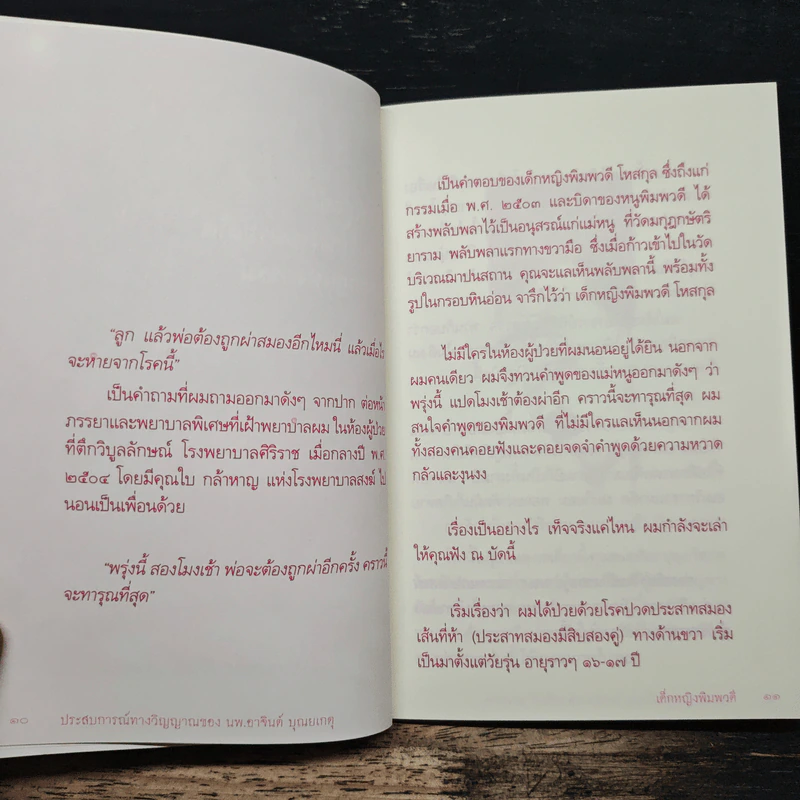 "ลูก แล้วพ่อต้องถูกผ่าสมองอีกไหมนี่ แล้วเมื่อไร
จะหายจากโรคนี้"
เป็นคำถามที่ผมถามออกมาดังๆ จากปาก ต่อหน้า
ภรรยาและพยาบาลพิเศษที่เฝ้าพยาบาลผม ในห้องผู้ป่วย
ที่ตึกวิบูลลักษณ์ โรงพยาบาลศิริราช เมื่อกลางปี พ.ศ.
๒๕๐๔ โดยมีคุณใบ กล้าหาญ แห่งโรงพยาบาลสงฆ์ ไป
นอนเป็นเพื่อนด้วย
"พรุ่งนี้ สองโมงเช้า พ่อจะต้องถูกผ่าอีกครั้ง คราวนี้
จะทารุณที่สุด"
๑๐ ประสบการณ์ทางวิญญาณของ นพ.อาจินต์ บุณยเกตุ
เป็นคำตอบของเด็กหญิงพิมพวดี โหสกุล ซึ่งถึงแก่
กรรมเมื่อ พ.ศ. ๒๕๐๓ และบิดาของหนูพิมพวดี ได้
สร้างพลับพลาไว้เป็นอนุสรณ์แก่แม่หนู ที่วัดมกุฎกษัตริ
ยาราม พลับพลาแรกทางขวามือ ซึ่งเมื่อก้าวเข้าไปในวัด
บริเวณฌาปนสถาน คุณจะแลเห็นพลับพลานี้ พร้อมทั้ง
รูปในกรอบหินอ่อน จารึกไว้ว่า เด็กหญิงพิมพวดี โหสกุล
ไม่มีใครในห้องผู้ป่วยที่ผมนอนอยู่ได้ยิน นอกจาก
ผมคนเดียว ผมจึงทวนคำพูดของแม่หนูออกมาดังๆ ว่า
พรุ่งนี้ แปดโมงเช้าต้องผ่าอีก คราวนี้จะทารุณที่สุด ผม
สนใจคำพูดของพิมพวดี ที่ไม่มีใครแลเห็นนอกจากผม
ทั้งสองคนคอยฟังและคอยจดจำคำพูดด้วยความหวาด
กลัวและงุนงง
เรื่องเป็นอย่างไร เท็จจริงแค่ไหน ผมกำลังจะเล่า
ให้คุณฟัง ณ บัดนี้
เริ่มเรื่องว่า ผมได้ป่วยด้วยโรคปวดประสาทสมอง
เส้นที่ห้า (ประสาทสมองมีสิบสองคู่) ทางด้านขวา เริ่ม
เป็นมาตั้งแต่วัยรุ่น อายุราวๆ ๑๖-๑๗ ปี
เด็กหญิงพิมพวดี ๑๑